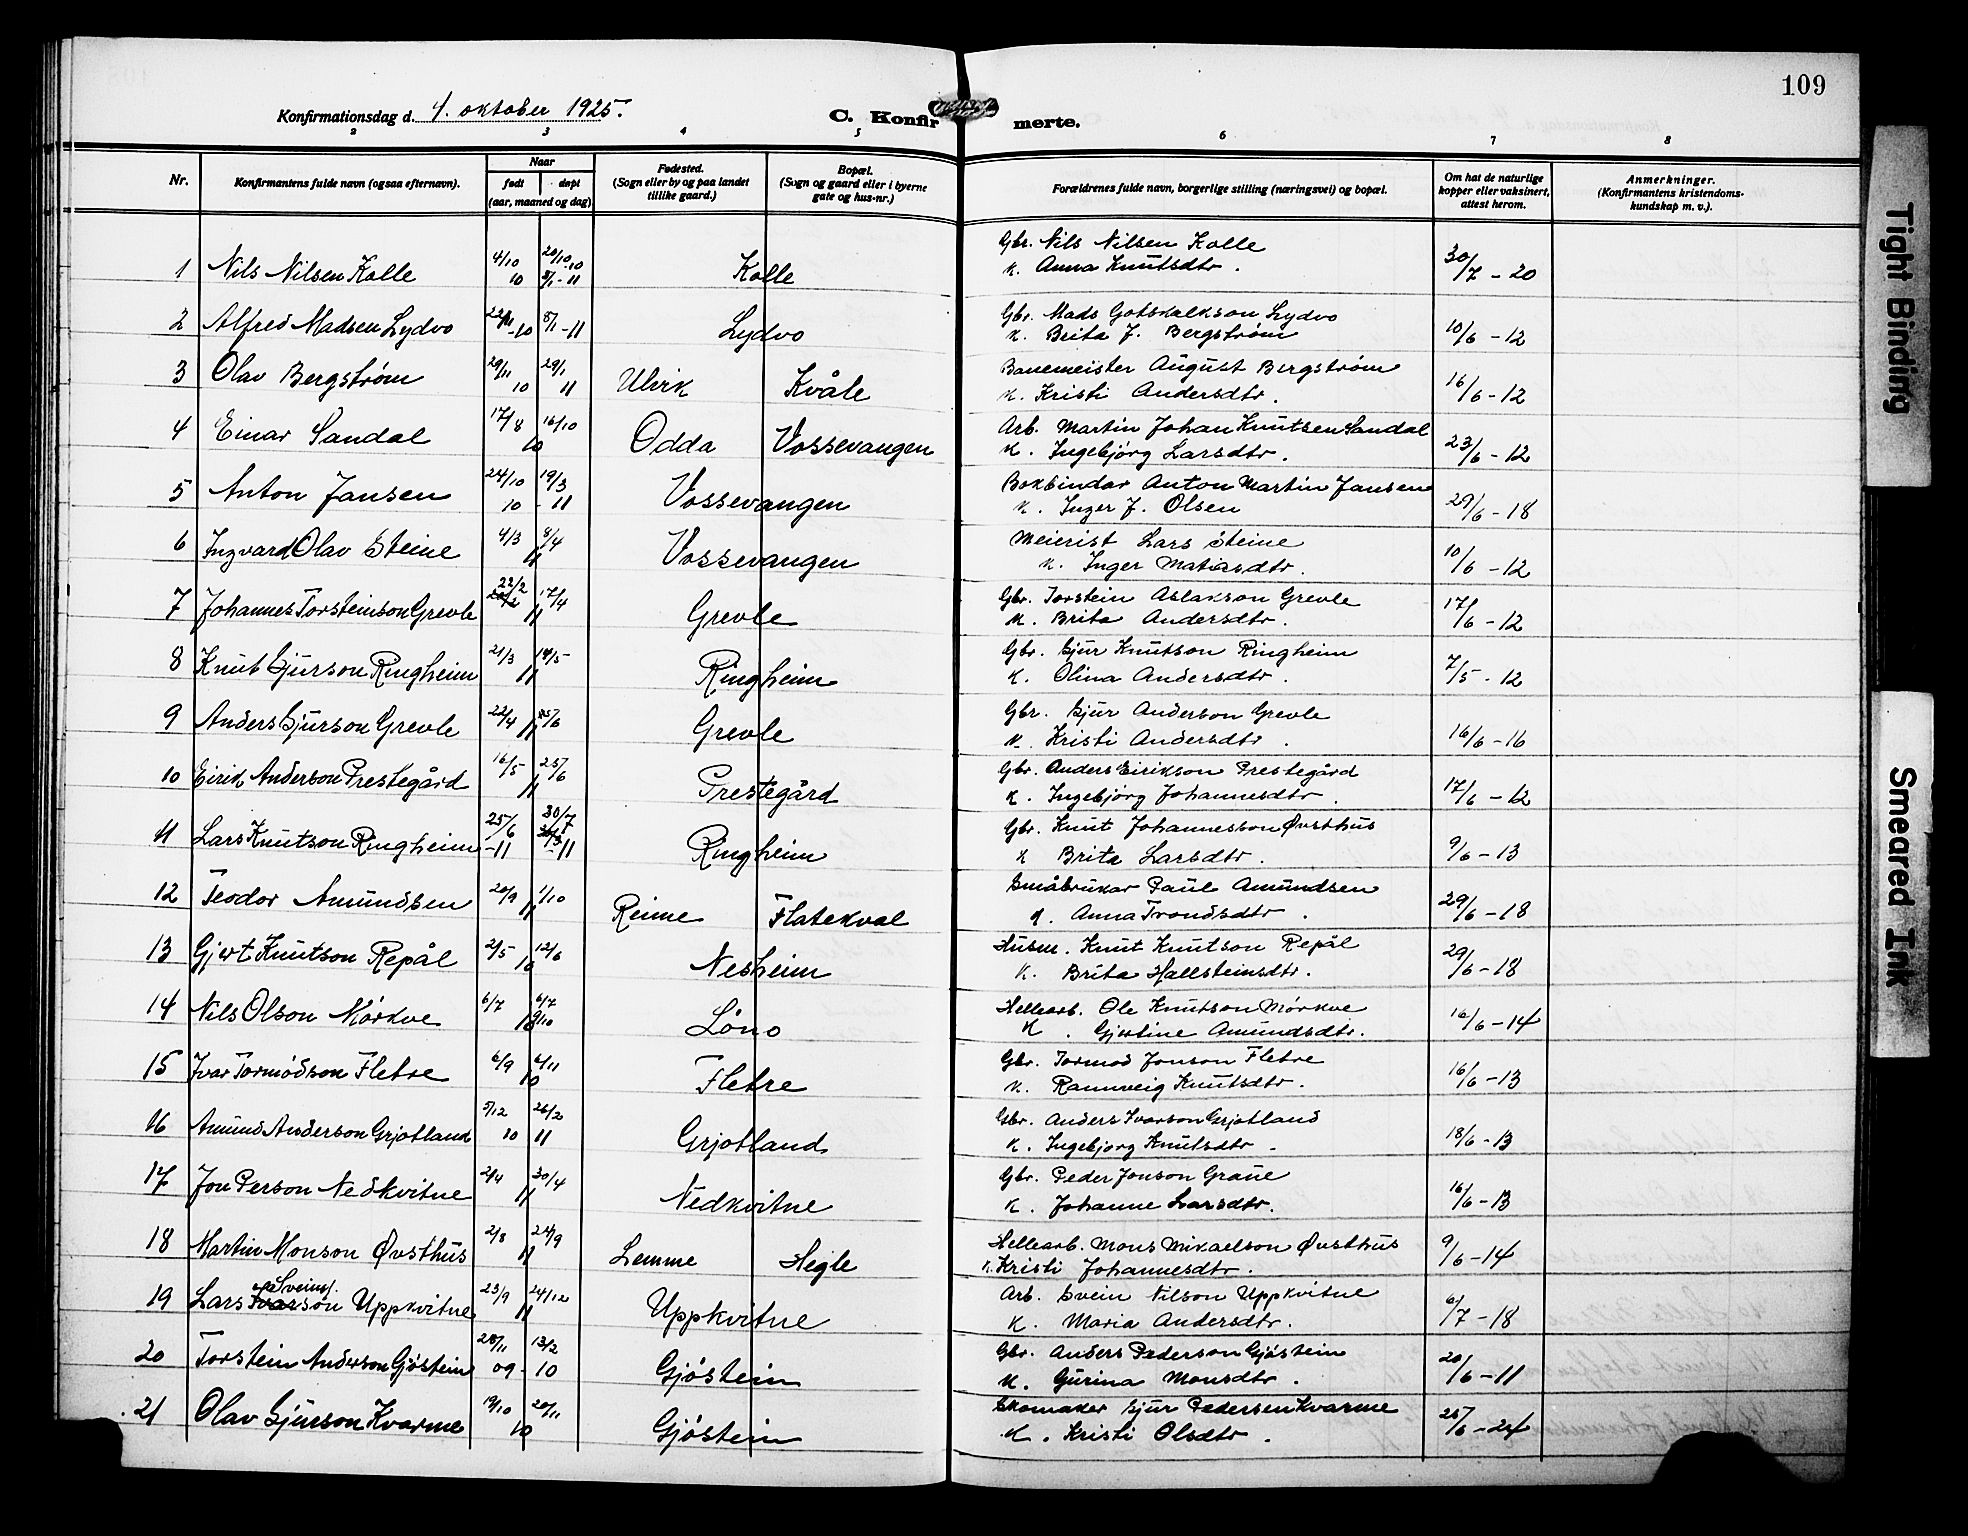 109
Konfirmationsdag d. 4. oktober 1925.
C. Konfirmerte.
2 3 4 5 6 7 8
Nr.
Konfirmantens fulde navn (ogsaa efternavn).
Naar
født døpt
(aar, maaned og dag)
Fødested.
(Sogn eller by og paa landet
tillike gaard.)
Bopæl.
(Sogn og gaard eller i byerne
gate og hus-nr.)
Forældrenes fulde navn, borgerlige stilling (næringsvei) og bopæl.
Om hat de naturlige
kopper eller vaksinert,
attest herom.
Anmerkninger.
(Konfirmantens kristendoms-
kundskap m. v.).
1 Nils Nilsen Kolle 4/10 10 Kolle Gbr. Nils Nilsen Kolle 30/7 - 20
K. Anna Knutsdtr.
2 Alfred Madsen Lydvo 8/1 - 11 Lydvo Gbr. Mads Gotskalkson Lydvo 10/6 - 12
K. Brita J. Bergstrøm
3 Olav Bergstrøm 29/11 10 29/1 11 Ulvik Kvåle Banemeister August Bergstrøm 16/6 - 12
K. Kristi Andersdtr.
4 Einar Sandal 17/8 16/10 10 Odda Vossevangen Arb. Martin Johan Knutsen Sandal 23/6 - 12
K. Ingebjørg Larsdtr.
5 Anton Jansen 24/10 10 19/3 - 11 Vossevangen Bokbindar Anton Martin Jansen 29/6 - 18
K. Inger J. Olsen
6 Ingvard Olav Steine 4/3 8/4 11 Vossevangen Meierist Lars Steine 10/6 - 12
K. Inger Matiasdtr.
7 Johannes Torsteinson Grevle 22/2 17/4 11 Grevle Gbr. Torstein Aslakson Grevle 17/6 - 12
K. Brita Andersdtr.
8 Knut Gjurson Ringheim 21/3 14/5 11 Ringheim Gbr. Gjur Knutson Ringheim 7/5 - 12
K. Olina Andersdtr.
9 Anders Gjurson Grevle 22/4 25/6 11 Grevle Gbr. Gjur Anderson Grevle 16/6 - 16
K. Kristi Andersdtr.
10 Eirik Anderson Prestegård 16/5 25/6 11 Prestegård Gbr. Anders Eirikson Prestegård 17/6 - 12
K. Ingebjørg Johannesdtr.
11 Lars Knutson Ringheim 25/6 - 11 30/7 - 11 Ringheim Gbr. Knut Johannesson Øvsthus 9/6 - 13
K Brita Larsdtr.
12 Teodor Amundsen 20/9 1/10 11 Reime Flatekval Småbrukar Paul Amundsen 29/6 - 18
K. Anna Trondsdtr.
13 Gjert Knutson Repål 2/5 12/6 10 Nesheim Husm. Knut Knutson Repål 29/6 - 18
K. Brita Hallsteinsdtr.
14 Nils Olson Mørkve 6/7 6/7 9/10 10 Løno Hellearb. Ole Knutson Mørkve 16/6 - 14
K. Gjertine Amundsdtr.
15 Ivar Tormodson Fletre 6/9 6/11 10 Fletre Gbr. Tormod Jonson Fletre 16/6 - 13
K. Rannveig Knutsdtr.
16 Amund Anderson Grjotland 5/12 10 26/2 11 Grjotland Gbr. Anders Ivarson Grjotland 18/6 - 13
K. Ingebjørg Knutsdtr.
17 Jon Person Nedkvitne 2/4 30/4 11 Nedkvitne Gbr. Peder Jonson Graue 16/6 - 13
K. Johanne Larsdtr.
18 Martin Monson Øvsthus 2/8 24/9 11 Lemme Hegle Hellearb. Mons Mikaelson Øvsthus 9/6 - 14
K. Kristi Johannesdtr.
Sveins/
19 Lars Ivarson Uppkvitne 23/9 24/12 11 Uppkvitne Arb. Svein Nilson Uppkvitne 6/7 - 18
K. Maria Andersdtr.
20 Torstein Anderson Gjøstein 28/11 09 - 13/2 10 Gjøstein Gbr. Anders Pederson Gjøstein 20/6 - 11
K. Gurina Monsdtr.
21 Olav Gjurson Kvarme 19/10 20/11 10 Gjøstein Skomaker Gjur Pedersen Kvarme 25/6 - 24
K. Kristi Olsdtr.
Tight Binding
Smeared Ink